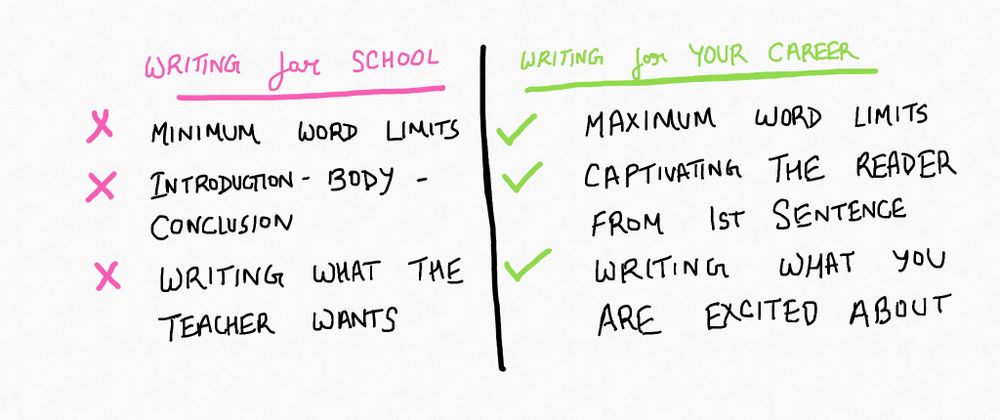 WRITING for SCHOOL
MINIMUM WORD LIMITS
INTRODUCTION - BODY -
CONCLUSION
WRITING WHAT THE
TEACHER WANTS
WRITING for YOUR CAREER
MAXIMUM WORD LIMITS
CAPTIVATING THE READER
FROM 1ST SENTENCE
WRITING WHAT YOU
ARE EXCITED ABOUT